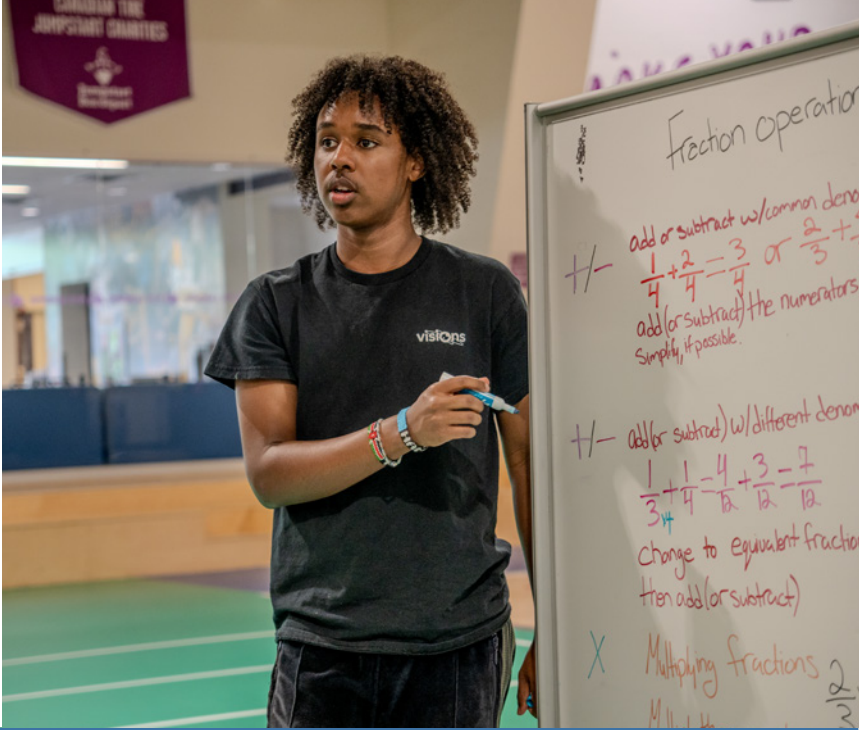 CANADIAN TIRE
JUMPSTART CHARITIES
visions
Fraction operation
add or subtract w/common deno
+/-
1/4 + 2/4 = 3/4 or 2/3 +
add (or subtract) the numerators
Simplify, if possible.
+/- add (or subtract) w/different denom
1/3 + 1/4 = 4/12 + 3/12 = 7/12
change to equivalent fractio
then add (or subtract)
X Multiplying fractions
2
3